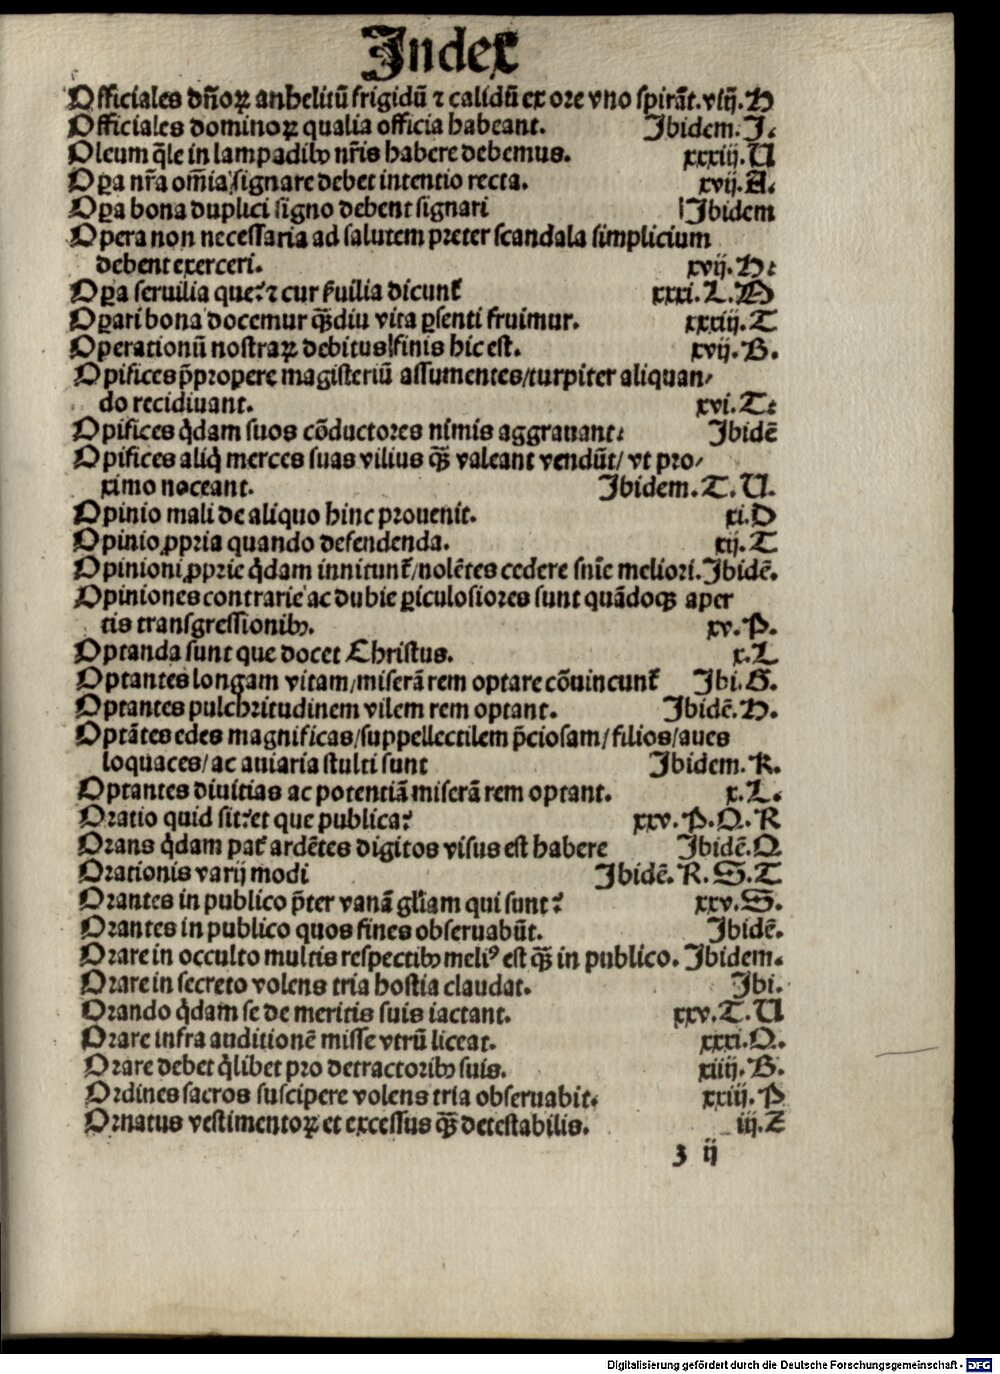 Index
Officiales dn̄oꝝ anhelitū frigidū ⁊ calidū ex ore vno spirāt. viij. H
Officiales dominoꝝ qualia officia habeant. Ibidem. I.
Oleum q̄le in lampadibꝰ nr̄is habere debemus. xxxiij. U
Oꝑa nr̄a om̄ia signare debet intentio recta. xvij. A.
Oꝑa bona duplici signo debent signari Ibidem
Opera non necessaria ad salutem preter scandala simplicium
debent exerceri. xvij. H.
Oꝑa seruilia que? ⁊ cur ẜuilia dicunt᷑ xxxi. L. M
Oꝑari bona docemur qꝫdiu vita p̄senti fruimur. xxxiij. T
Operationū nostraꝝ debitus finis hic est. xvij. B.
Opifices p̄propere magisteriū assumentes/turpiter aliquan/
do recidiuant. xvi. T.
Opifices q̇dam suos cōductores nimis aggrauant. Ibidē
Opifices aliq̇ merces suas vilius qꝫ valeant vendūt/ vt pro/
ximo noceant. Ibidem. T. U.
Opinio mali de aliquo hinc prouenit. xi. D
Opinio ꝓpria quando defendenda. xij. T
Opinioni ꝓprie q̇dam innitunt᷑/nolētes cedere sn̄ie meliori. Ibidē.
Opiniones contrarie ac dubie ꝑiculosiores sunt quādoqꝫ aper
tis transgressionibꝰ. xv. P.
Optanda sunt que docet Christus. x. L
Optantes longam vitam/miserā rem optare cōuincunt᷑ Ibi. G.
Optantes pulchritudinem vilem rem optant. Ibidē. H.
Optātes edes magnificas/suppellectilem p̄ciosam/filios/aues
loquaces/ac auiaria stulti sunt Ibidem. K.
Optantes diuitias ac potentiā miserā rem optant. x. L.
Oratio quid sit? et que publica? xxv. P. Q. R
Orans q̇dam pat᷑ ardētes digitos visus est habere Ibidē. Q
Orationis varij modi Ibidē. R. S. T
Orantes in publico p̄ter vanā gl̄iam qui sunt? xxv. S.
Orantes in publico quos fines obseruabūt. Ibidē.
Orare in occulto multis respectibꝰ meliꝰ est qꝫ in publico. Ibidem.
Orare in secreto volens tria hostia claudat. Ibi.
Orando q̇dam se de meritis suis iactant. xxv. T. U
Orare infra auditionē misse vtrū liceat. xxxi. Q.
Orare debet q̇libet pro detractoribꝰ suis. xiiij. B.
Ordines sacros suscipere volens tria obseruabit. xxiij. P
Ornatus vestimentoꝝ et excessus qꝫ detestabilis. iij. Z
3 ij
Digitalisierung gefördert durch die Deutsche Forschungsgemeinschaft - DFG